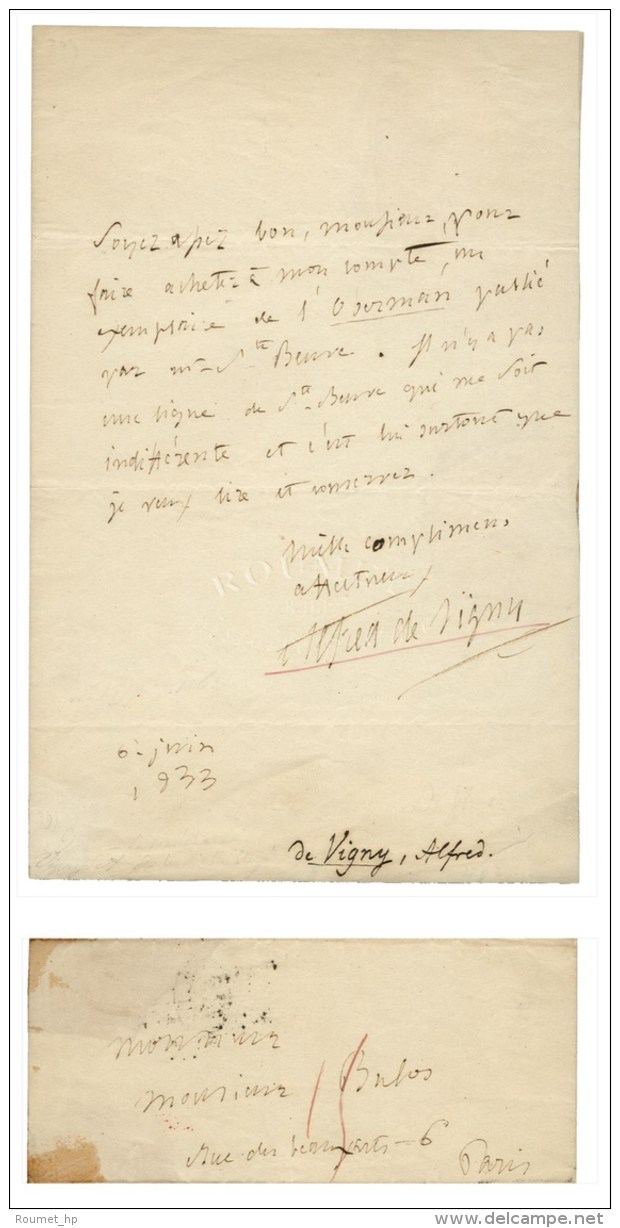 Soyez assez bon, monsieur, pour
faire acheter à mon compte, un
exemplaire de l'Oberman publié
par mr Ste Beuve. Il n'y a pas
une ligne de Ste Beuve qui me soit
indifférente et c'est lui surtout que
je veux lire et conserver.
Mille complimens
affectueux
Alfred de Vigny
6 juin
1833
de Vigny, Alfred.
ROUMET
Monsieur
Monsieur Buloz
Rue des beaux arts - 6
Paris
Roumet_hp
delcampe.net